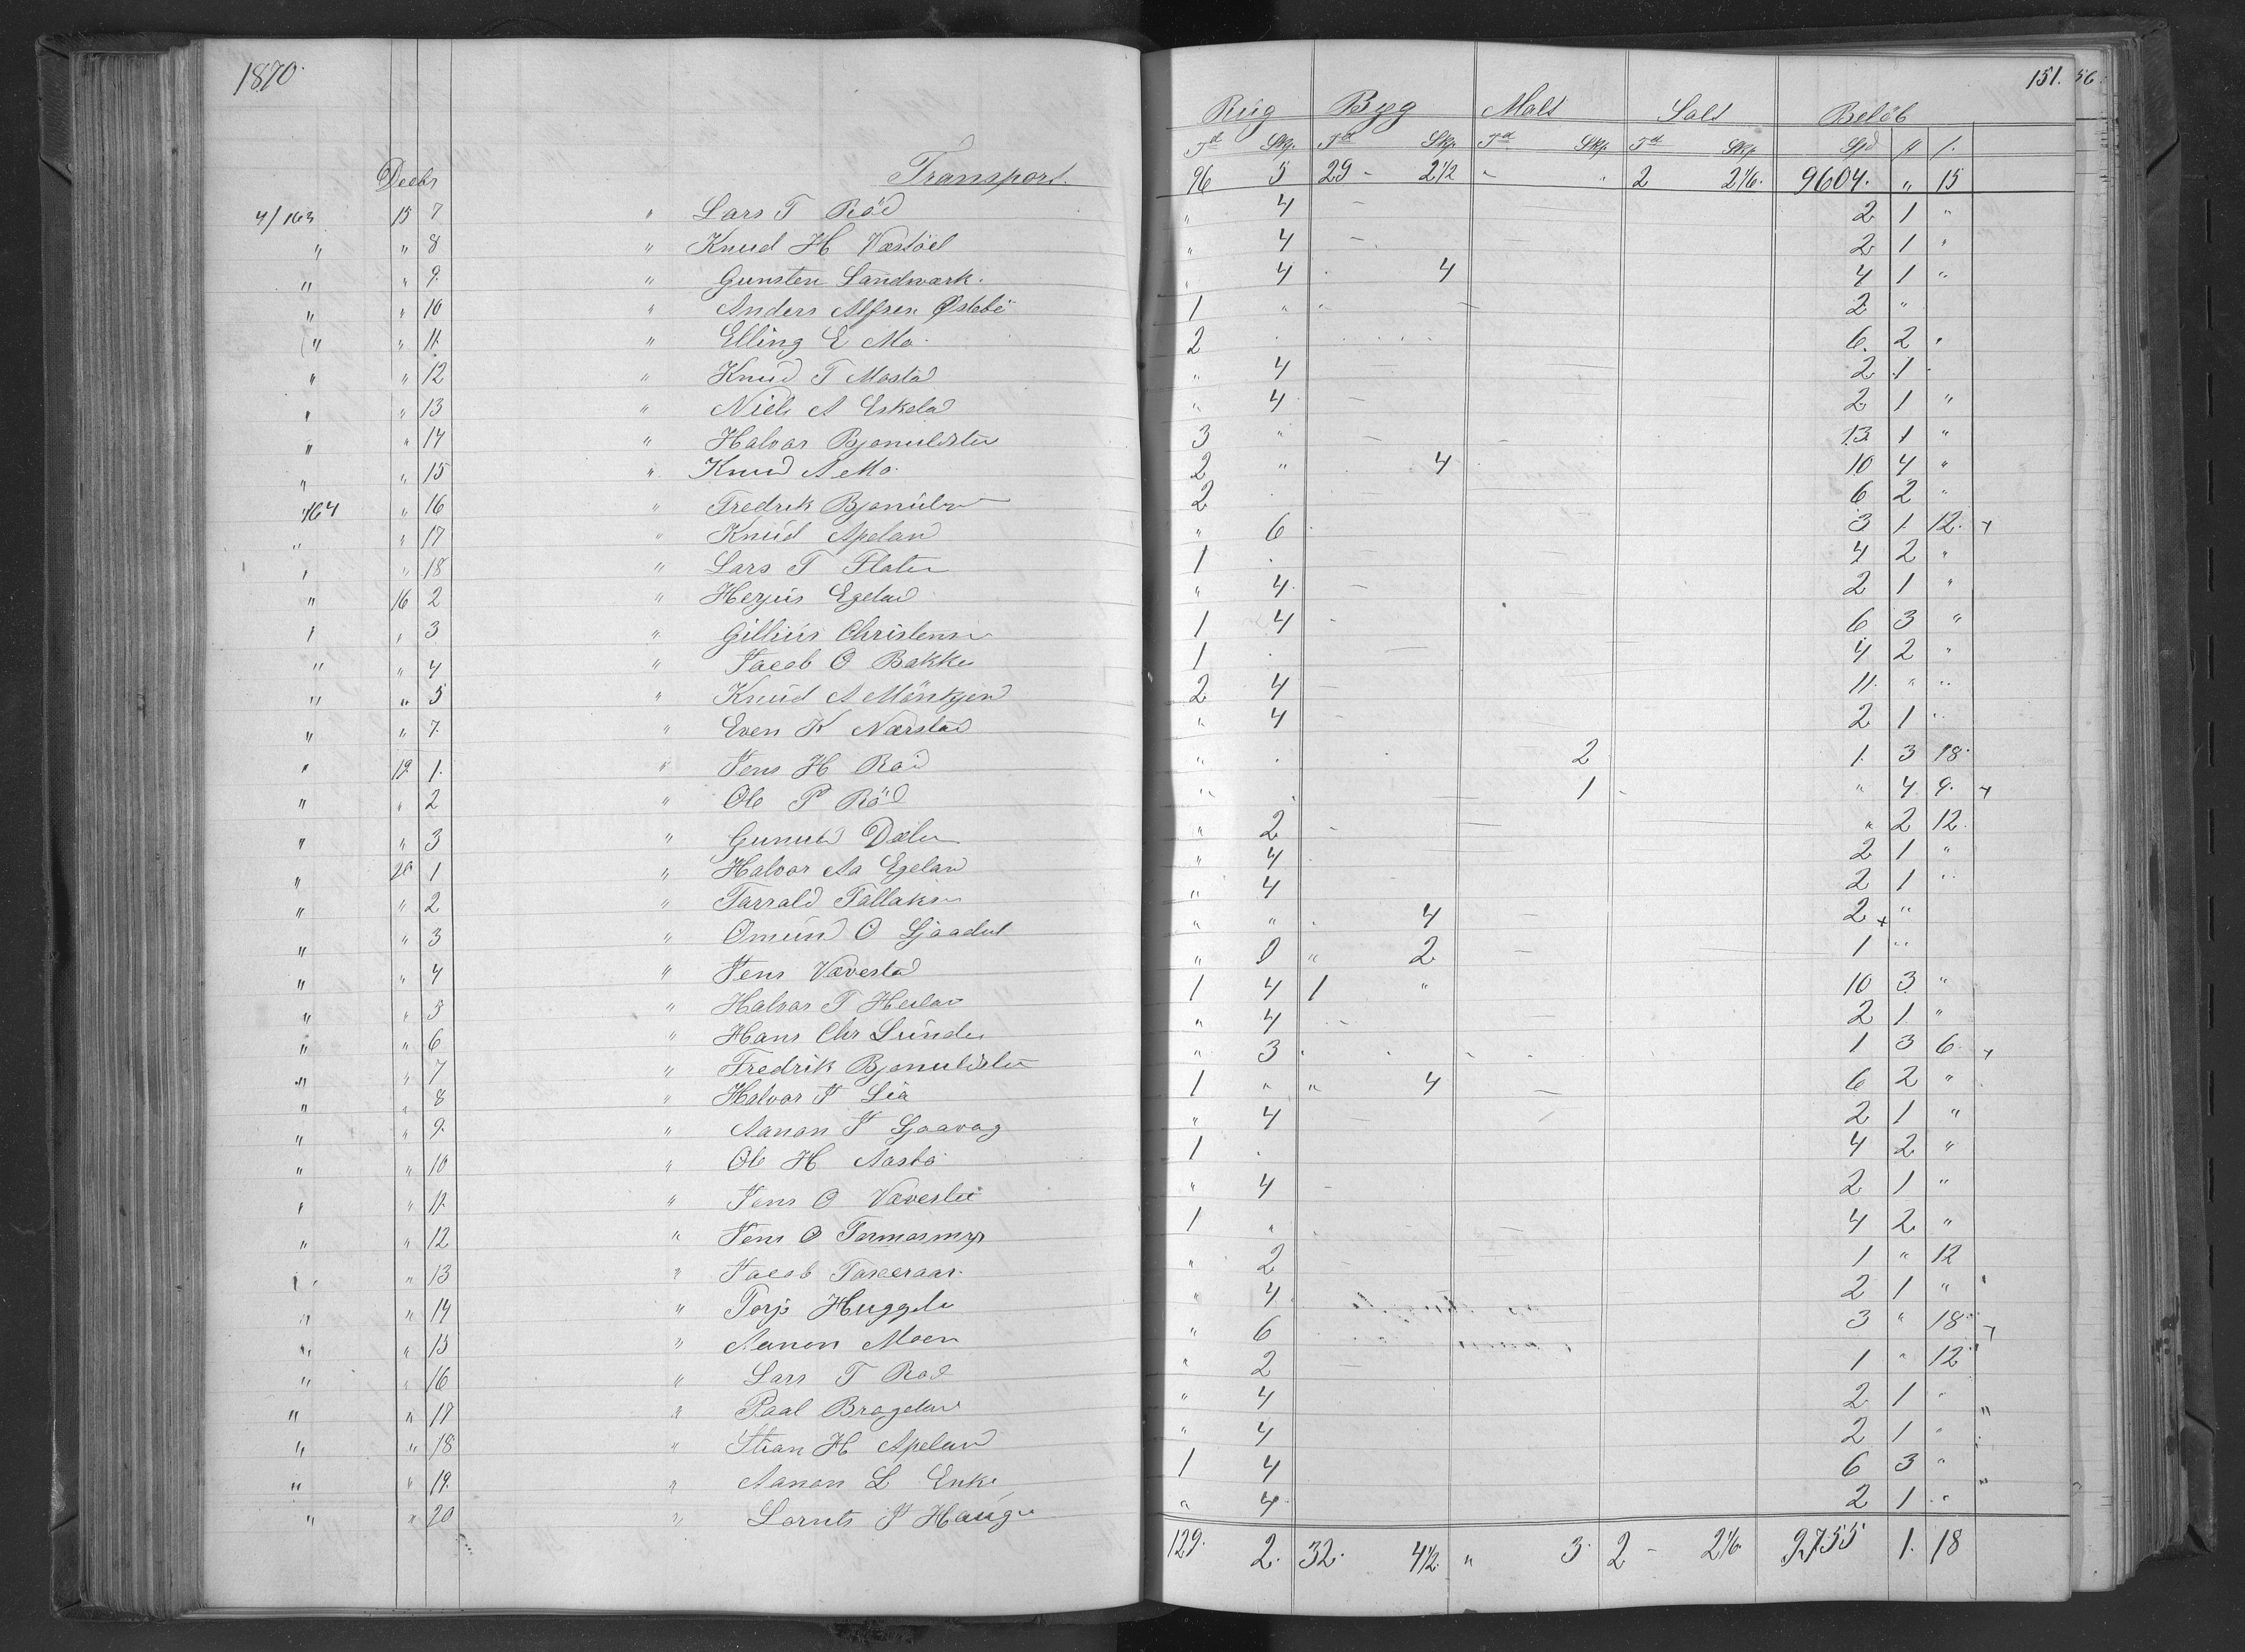 1870.
151. 56
Rug Byg Malt Salt Beløb
Td Skp. Td Skp. Td Skp. Td Skp. Spd
Decbr Transport. 96 5 29 - 2 1/2 " " 2 2 1/6. 9604. " 15
4/163 15 7 " Lars T Röd " 4 2 1 "
" " 8 " Knud H " 4 2 1 "
" " 9. " Gunsten Landwark. " 4 4 4 1 "
" " 10 " Anders Alfsen Østebö 1 " " 2 "
" " 11. " Elling E Mo. 2 6. 2 "
" " 12 " Knud T Mostad " 4 2 1
" " 13 " Niels A Eskelad " 4 2 1 "
" " 14 " Halvor 3 " 13 1 "
" " 15 " Knud A Mo. 2 " 4 10 4 "
164 " 16 " Fredrik 2 6 2 "
" " 17 " Knud Apelan " 6 3 1. 12.
" " 18 " Lars T Flaten 1 4 2 "
" 16 2 " Herjus Egelad " 4 2 1 "
" " 3 " Gillius Christensen 1 4 6 3 "
" " 4 " Jacob O Bakke 1 4 2 "
" " 5 " Knud A 2 4 11. " "
" " 7. " Even K Nærstad " 4 2 1 "
" 19 1. " Jens H Röd " 2 1. 3 18.
" " 2 " Ole P Röd " 1 " 4 9.
" " 3 " Gunuld Dalen " 2 " 2 12.
" 20 1 " Halvor Aa Egelan " 4 2 1 "
" " 2 " Tarrald Tallaksen " 4 2 1 "
" " 3 " Omund O " " 4 2 "
" " 4 " Jens Vævestad " " 2 1 "
" " 5 " Halvor T 1 4 1 " 10 3 "
" " 6 " Hans Chr Lunden " 4 2 1 "
" " 7 " Fredrik " 3 1 3 6
" " 8 " Halvor J Lia 1 " " 4 6 2 "
" " 9. " Aanon J Sjaavag " 4 2 1 "
" " 10 " Ole H Aastö 1 4 2 "
" " 11. " Jens O " 4 2 1 "
" " 12 " Jens O Tormosmyr 1 " 4 2 "
" " 13 " Jacob " 2 1 " 12
" " 14 " Torjs " 4 2 1 "
" " 15 " Aanon Moen " 6 3 " 18
" " 16 " Lars T Röd " 2 1 " 12
" " 17 " Paal " 4 2 1 "
" " 18 " Stian H Apeland " 4 2 1 "
" " 19. " Aanon L 1 4 6 3 "
" " 20 " Lornts J Hauge " 4 2 1 "
129. 2. 32. 4 1/2 " 3. 2 - 2 1/6 9755 1. 18